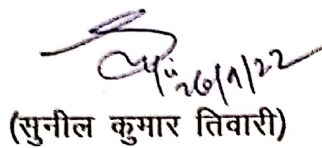 26/9/22
(सुनील कुमार तिवारी)